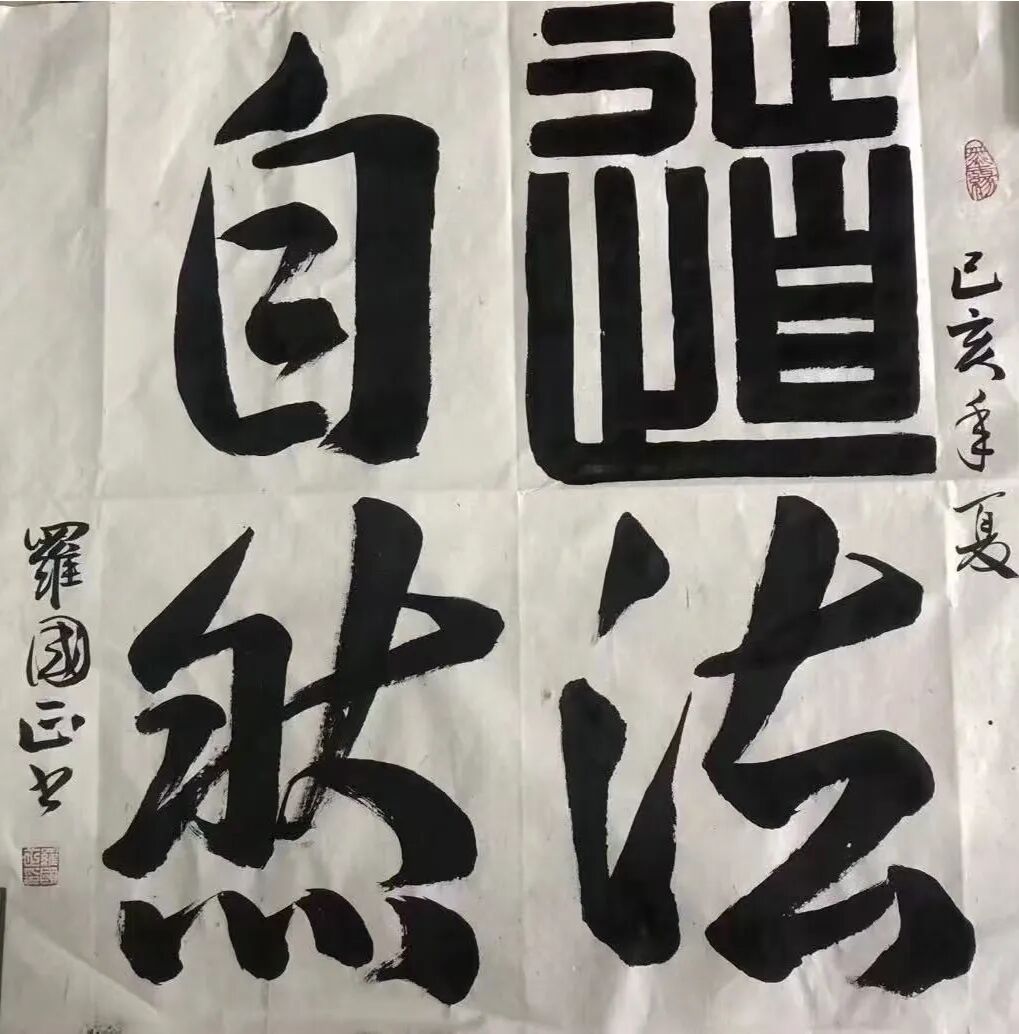 己亥年夏
道法
自然
羅國正书